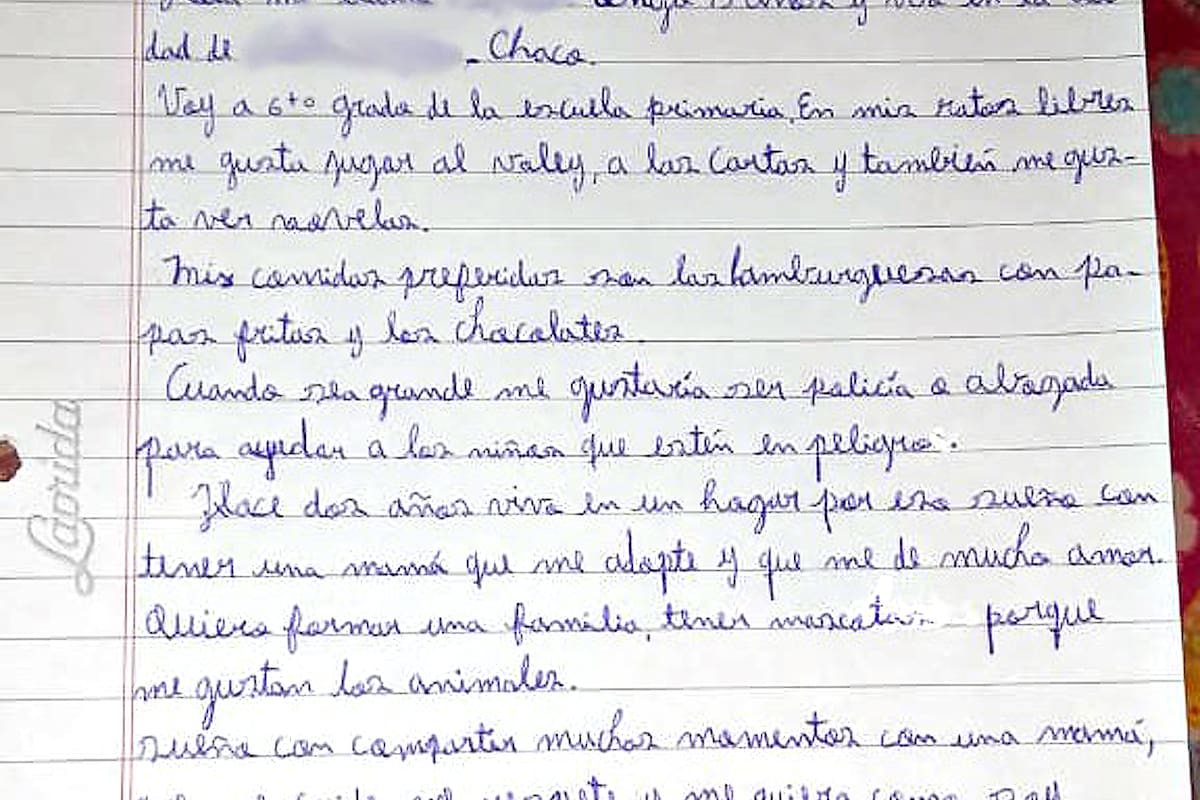 me
tengo
años y vivo en la
dad de
- Chaco.
Voy a 6to grado de la escuela primaria. En mis ratos libres
me gusta jugar al voley, a las cartas y también me gus-
ta ver novelas.
Mis comidas preferidas son las hamburguesas con pa-
pas fritas y los chocolates.
Cuando sea grande me gustaría ser policía o abogada
para ayudar a los niños que estén en peligro.
Hace dos años vivo en un hogar por eso sueño con
tener una mamá que me adopte y que me de mucho amor.
Quiero formar una familia, tener mascotas porque
me gustan los animales.
sueño con compartir muchos momentos con una mamá,
y me quiera como soy
Laorida